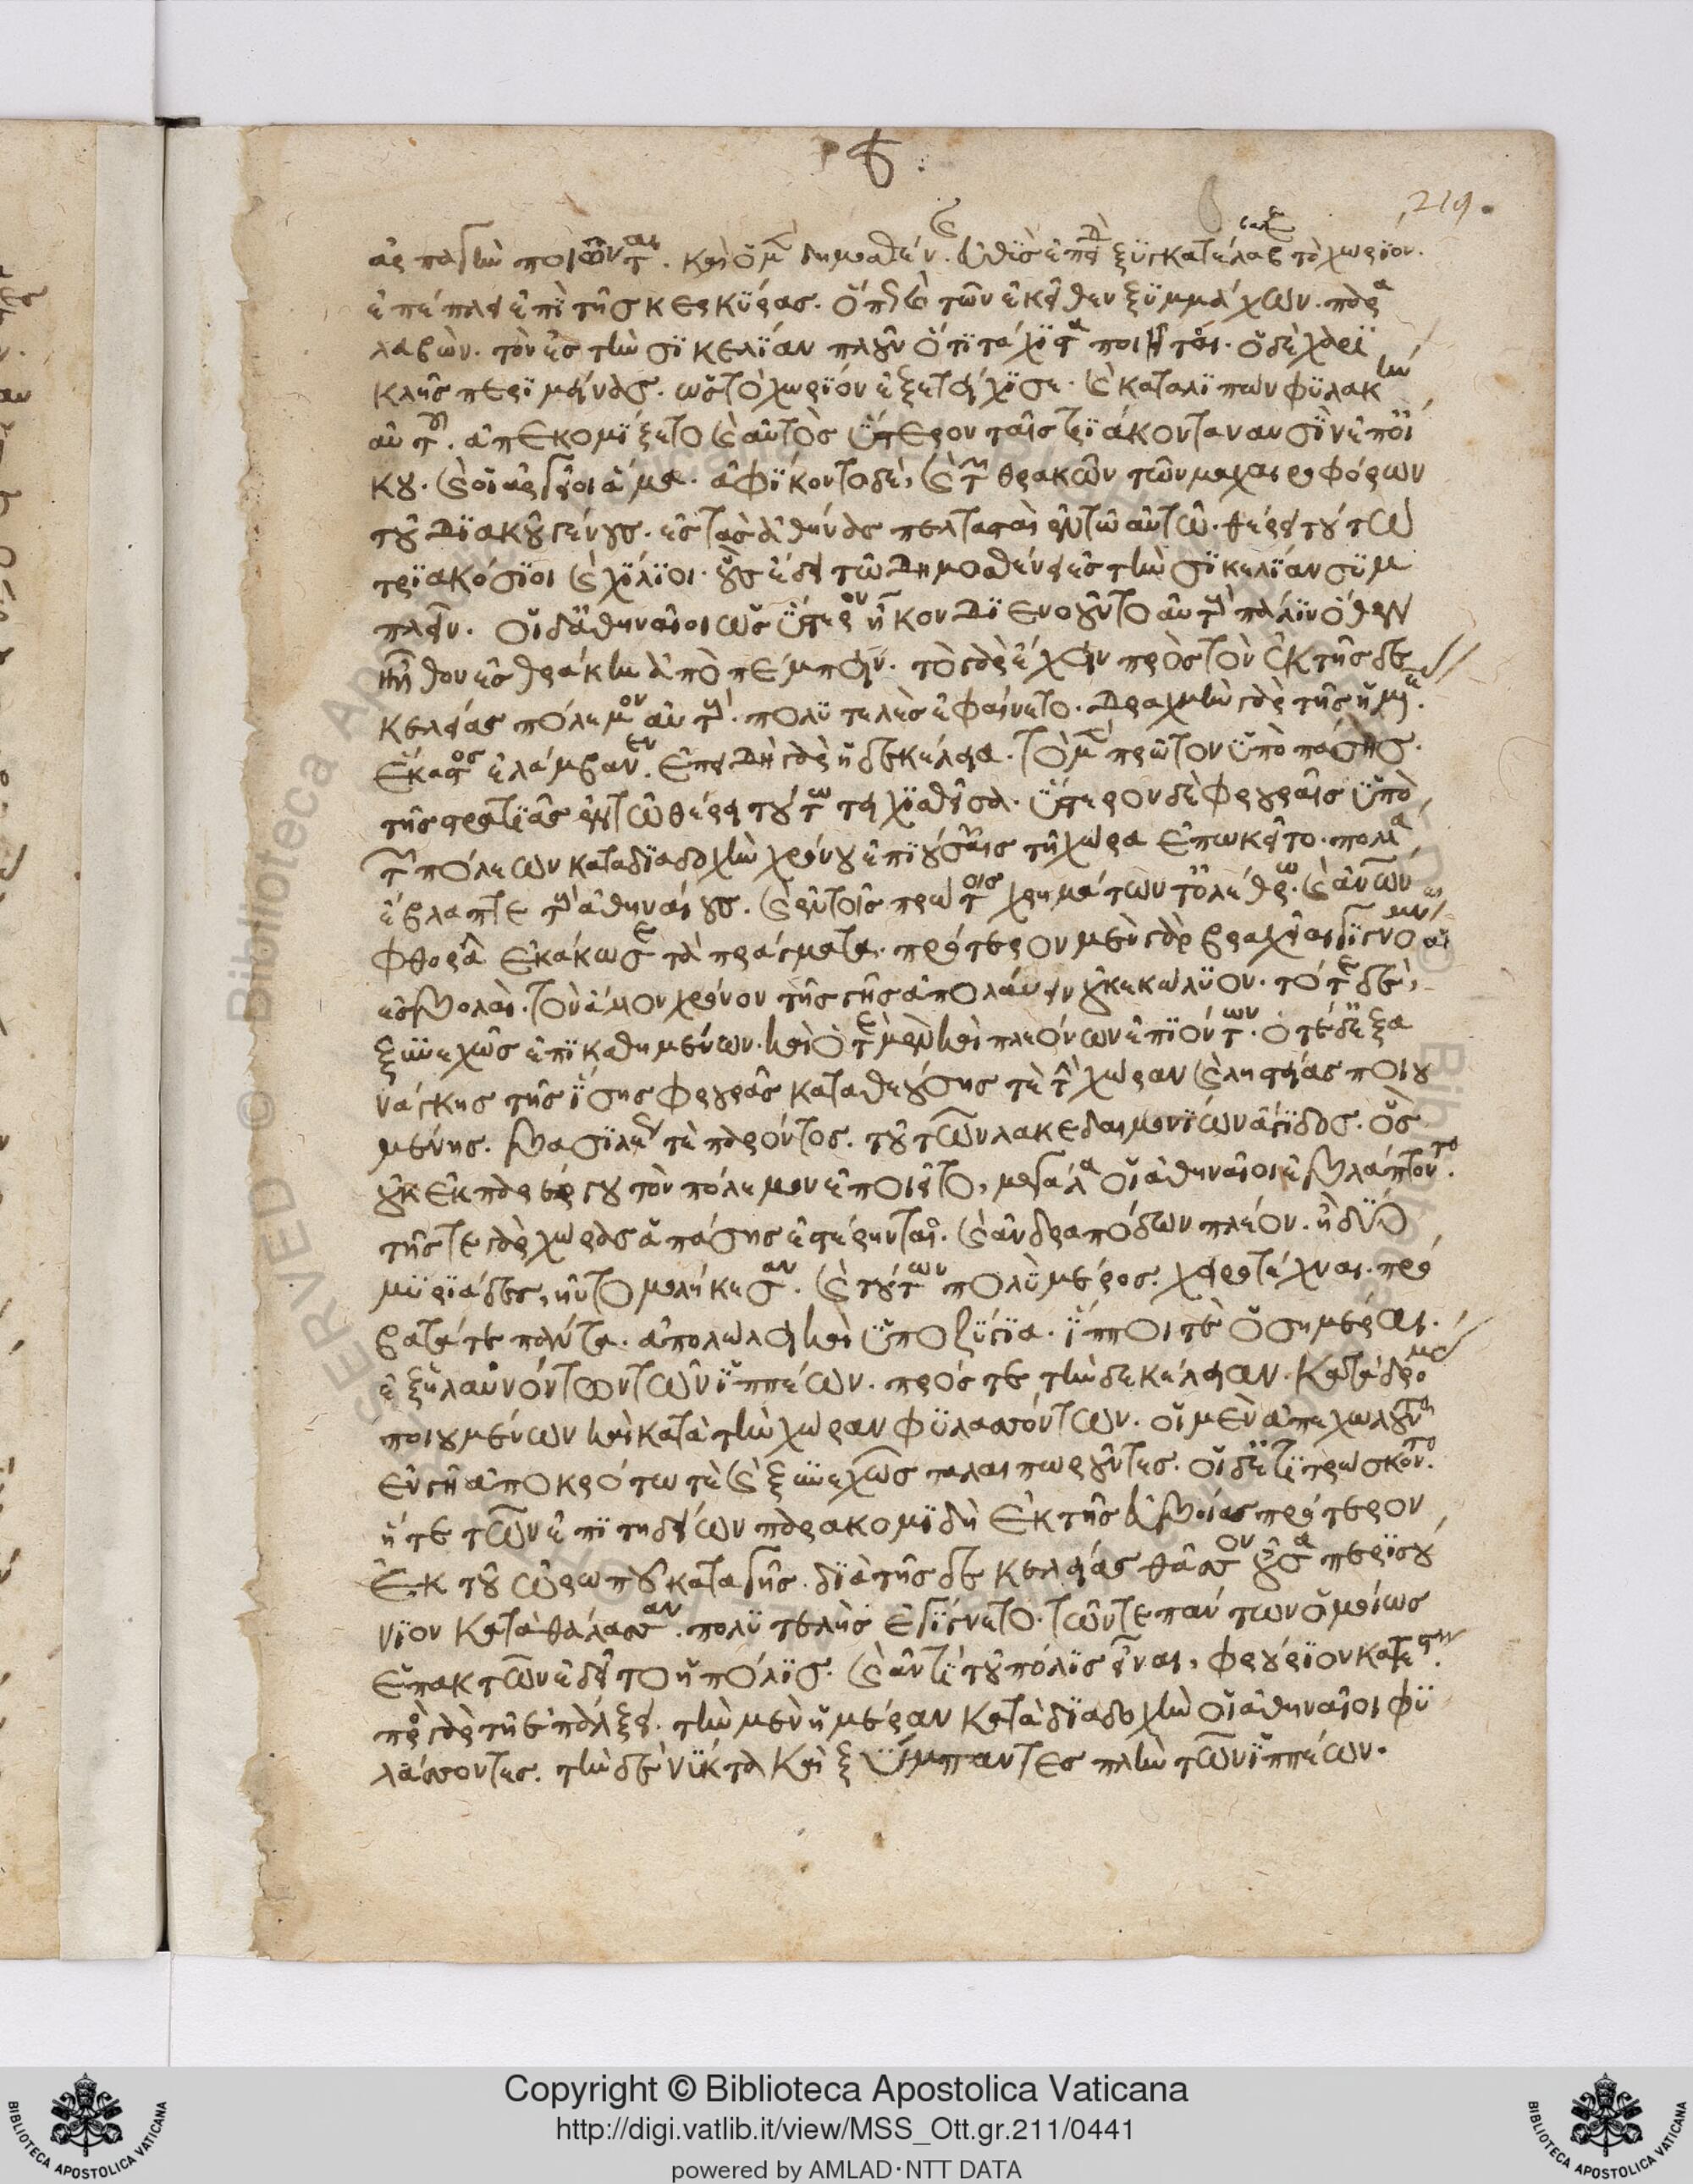 219.
ἁρπαγὴν ποιῶνται. καὶ ὁ μὲν δημοσθένης εὐθὺς ἐπειδὴ ξυγκατέλαβε τὸ χωρίον.
ἐπέπλει ἐπὶ τῆς κερκύρας. ὅπως καὶ τῶν ἐκεῖθεν ξυμμάχων. παρα
λαβὼν. τὸν ἐς τὴν σικελίαν πλοῦν ὅτι τάχιστα ποιῆται. ὁ δὲ χαρι
κλῆς περιμείνας. ὡς τὸ χωρίον ἐξετείχισε. καὶ καταλιπων φύλακὴν
αὐτοῦ. ἀπεκομίζετο καὶ αὐτὸς ὕστερον ταῖς τριάκοντα ναυσὶν ἐπ οἴ
κου. καὶ οἱ ἀργεῖοι ἅμα. ἀφίκοντο δὲ, καὶ τῶν θρακῶν τῶν μαχαιροφόρων
τοῦ διακοῦ γένους. ἐς τὰς ἀθήνας πελτασταὶ ἐν τῶ αὐτῶ. θέρει τούτω
τριακόσιοι καὶ χίλιοι. οὓς ἔδει τῶ δημοσθένει ἐς τὴν σικελίαν συμ
πλεῖν. οἱ δ' ἀθηναῖοι ὡς ὕστερον ἧκον διενοοῦντο αὐτοὺς πάλιν ὅθεν
ἦλθον ἐς θράκην ἀποπέμπειν. τὸ γὰρ ἔχειν πρὸς τὸν ἐκ τῆς δε
κελείας πόλεμον αὐτοὺς. πολυτελὲς ἐφαίνετο. δραχμὴν γὰρ τῆς ἡμέρας
ἕκαστος ἐλάμβανεν. ἐπειδὴ γὰρ ἡ δεκέλεια. τὸ μὲν πρῶτον ὑπὸ πάσης.
τῆς στρατιᾶς ἐν τῶ θέρει τούτω τειχισθεῖσα. ὕστερον δὲ φρουραῖς ὑπὸ
τῶν πόλεων κατα διαδοχὴν χρόνου ἐπιούσαις τῆ χώρα ἐπωκεῖτο. πολλὰ
ἔβλαπτε τοὺς ἀθηναίους. καὶ ἐν τοῖς πρώτοις χρημάτων τ' ὀλέθρω. καὶ ἀνθρώπων
φθορᾶ ἐκάκωσε τὰ πράγματα. πρότερον μὲν γὰρ βραχεῖαι γιγνόμεναι αἱ
ἐσβολαὶ. τὸν ἄλλον χρόνον τῆς γῆς ἀπολαύειν οὐκ ἐκώλυον. τότε δὲ,
ξυνεχῶς ἐπικαθημένων. καὶ ὁτὲ μὲν καὶ πλεόνων ἐπιόντων. ὁτὲ δ' ἐξ ἀ
νάγκης τῆς ἴσης φρουρᾶς καταθεούσης τὲ τὴν χώραν καὶ ληστείας ποιου
μένης. βασιλέως τὲ παρόντος. τοῦ τῶν λακεδαιμονίων ἄγιδος. ὃς
οὐκ ἐκ παρέργου τὸν πόλεμον ἐποιεῖτο, μεγάλα οἱ ἀθηναῖοι ἐβλάπτοντο.
τῆς τε γὰρ χώρας ἁπάσης ἐστέρηνται. καὶ ἀνδραπόδων πλέον. ἢ δύο
μυριάδες, ηὐτομολήκεσαν. καὶ τούτων πολὺ μέρος. χειροτέχναι. πρό
βατά τε πάντα. ἀπολώλει καὶ ὑποζύγια. ἵπποι τὲ ὁσημέραι.
ἐξελαυνόντων τῶν ἱππέων. πρός τε τὴν δεκέλειαν. καταδρομὰς
ποιουμένων καὶ κατὰ τὴν χώραν φυλασσόντων. οἱ μὲν ἀπεχωλοῦντο
ἐν γῆ ἀποκρότω τὲ καὶ ξυνεχῶς ταλαιπωροῦντες. οἱ δ' ἐτιτρώσκοντο.
ἥ τε τῶν ἐπιτηδείων παρακομιδὴ ἐκ τῆς εὐβοίας πρότερον
ἐκ τοῦ ὠρωποῦ κατα γῆς. διὰ τῆς δεκελείας θᾶσσον οὖσα περὶ σού
νιον κατὰ θάλασσαν. πολυτελὴς ἐγίγνετο. τῶν τε πάντων ὁμοίως
ἐπακτῶν ἐδεῖτο ἡ πόλις. καὶ ἀντὶ τοῦ πόλις εἶναι, φρούριον κατέστη.
πρὸς γὰρ τῆ ἐπάλξει. τὴν μὲν ἡμέραν κατὰ διαδοχὴν οἱ ἀθηναῖοι φυ
λάσσοντες. τὴν δὲ νύκτα καὶ ξύμπαντες πλὴν τῶν ἱππέων.
Copyright © Biblioteca Apostolica Vaticana
http://digi.vatlib.it/view/MSS_Ott.gr.211/0441
powered by AMLAD·NTT DATA
BIBLIOTECA APOSTOLICA VATICANA
BIBLIOTECA APOSTOLICA VATICANA